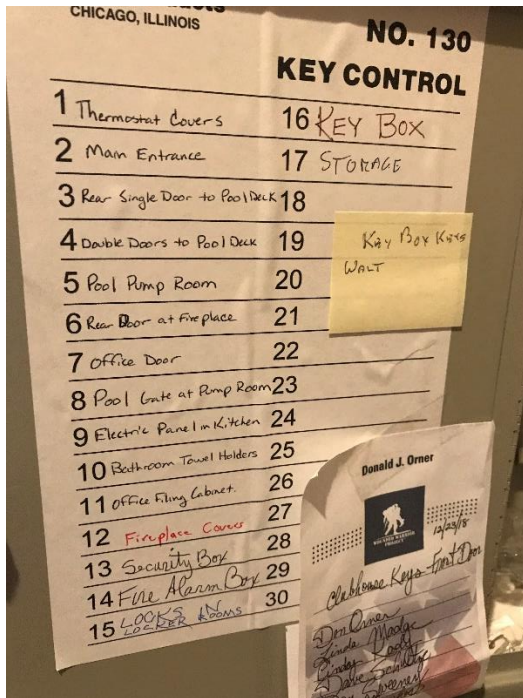 CHICAGO, ILLINOIS
NO. 130
KEY CONTROL
1 Thermostat Covers
2 Main Entrance
3 Rear Single Door to Pool Deck
4 Double Doors to Pool Deck
5 Pool Pump Room
6 Rear Door at Fireplace
7 Office Door
8 Pool Gate at Pump Room
9 Electric Panel in Kitchen
10 Bathroom Towel Holders
11 Office Filing Cabinet.
12 Fireplace Covers
13 Security Box
14 Fire Alarm Box
15 LOCKS IN
LOCKER ROOMS
16 KEY BOX
17 STORAGE
18
19
20
21
22
23
24
25
26
27
28
29
30
Key Box Keys
WALT
Donald J. Orner
WOUNDED WARRIOR
PROJECT
12/23/18
Clubhouse Keys - Front Door
Don Orner
Linda